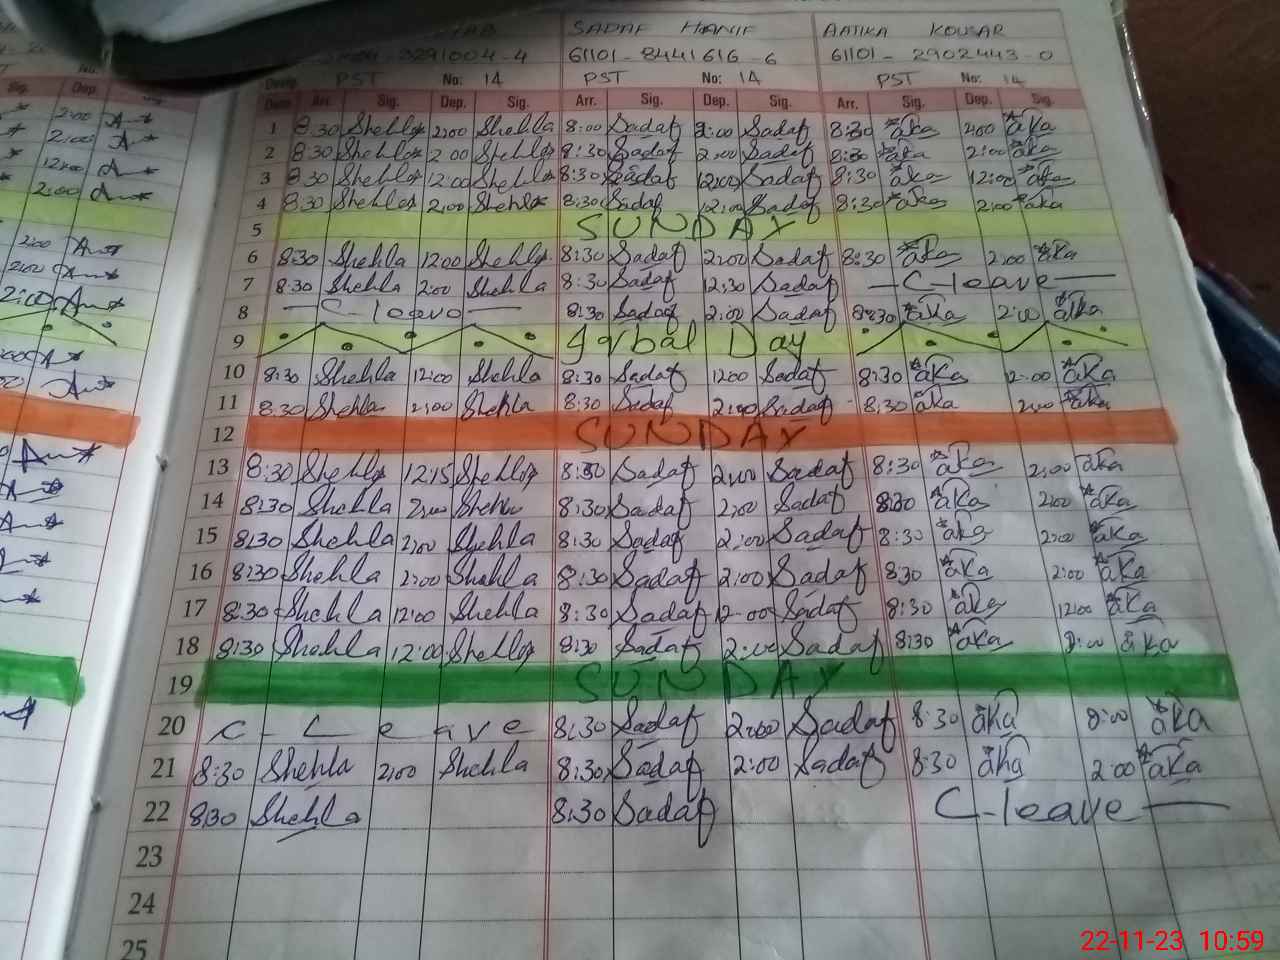 SADAF HANIF AATIKA KOUSAR
3291004-4 61101-8441616-6 61101-2902443-0
PST No: 14 PST No: 14 PST No: 14
Date Arr. Sig. Dep. Sig. Arr. Sig. Dep. Sig. Arr. Sig. Dep. Sig.
1 8:30 Shehla 2:00 Shehla 8:00 Sadaf 2:00 Sadaf 8:30 aka 2:00 aka
2 8:30 Shehla 2:00 Shehla 8:30 Sadaf 2:00 Sadaf 8:30 aka 2:00 aka
3 8:30 Shehla 12:00 Shehla 8:30 Sadaf 12:00 Sadaf 8:30 aka 12:00 aka
4 8:30 Shehla 2:00 Shehla 8:30 Sadaf 12:00 Sadaf 8:30 aka 2:00 aka
5 SUNDAY
6 8:30 Shehla 12:00 Shehla 8:30 Sadaf 2:00 Sadaf 8:30 aka 2:00 aka
7 8:30 Shehla 2:00 Shehla 8:30 Sadaf 12:30 Sadaf — C-leave —
8 — C-leave — 8:30 Sadaf 2:00 Sadaf 8:30 aka 2:00 aka
9 Iqbal Day
10 8:30 Shehla 12:00 Shehla 8:30 Sadaf 1200 Sadaf 8:30 aka 2:00 aka
11 8:30 Shehla 2:00 Shehla 8:30 Sadaf 2:00 Sadaf 8:30 aka 2:00 aka
12 SUNDAY
13 8:30 Shehla 12:15 Shehla 8:30 Sadaf 2:00 Sadaf 8:30 aka 2:00 aka
14 8:30 Shehla 2:00 Shehla 8:30 Sadaf 2:00 Sadaf 8:30 aka 2:00 aka
15 8:30 Shehla 2:00 Shehla 8:30 Sadaf 2:00 Sadaf 8:30 aka 2:00 aka
16 8:30 Shehla 2:00 Shehla 8:30 Sadaf 2:00 Sadaf 8:30 aka 2:00 aka
17 8:30 Shehla 12:00 Shehla 8:30 Sadaf 12:00 Sadaf 8:30 aka 12:00 aka
18 8:30 Shehla 12:00 Shehla 8:30 Sadaf 2:00 Sadaf 8:30 aka aka
19 SUNDAY
20 C-Leave 8:30 Sadaf 2:00 Sadaf 8:30 aka aka
21 8:30 Shehla 2:00 Shehla 8:30 Sadaf 2:00 Sadaf 8:30 aka 2:00 aka
22 8:30 Shehla 8:30 Sadaf C-leave —
23
24
25
22-11-23 10:59